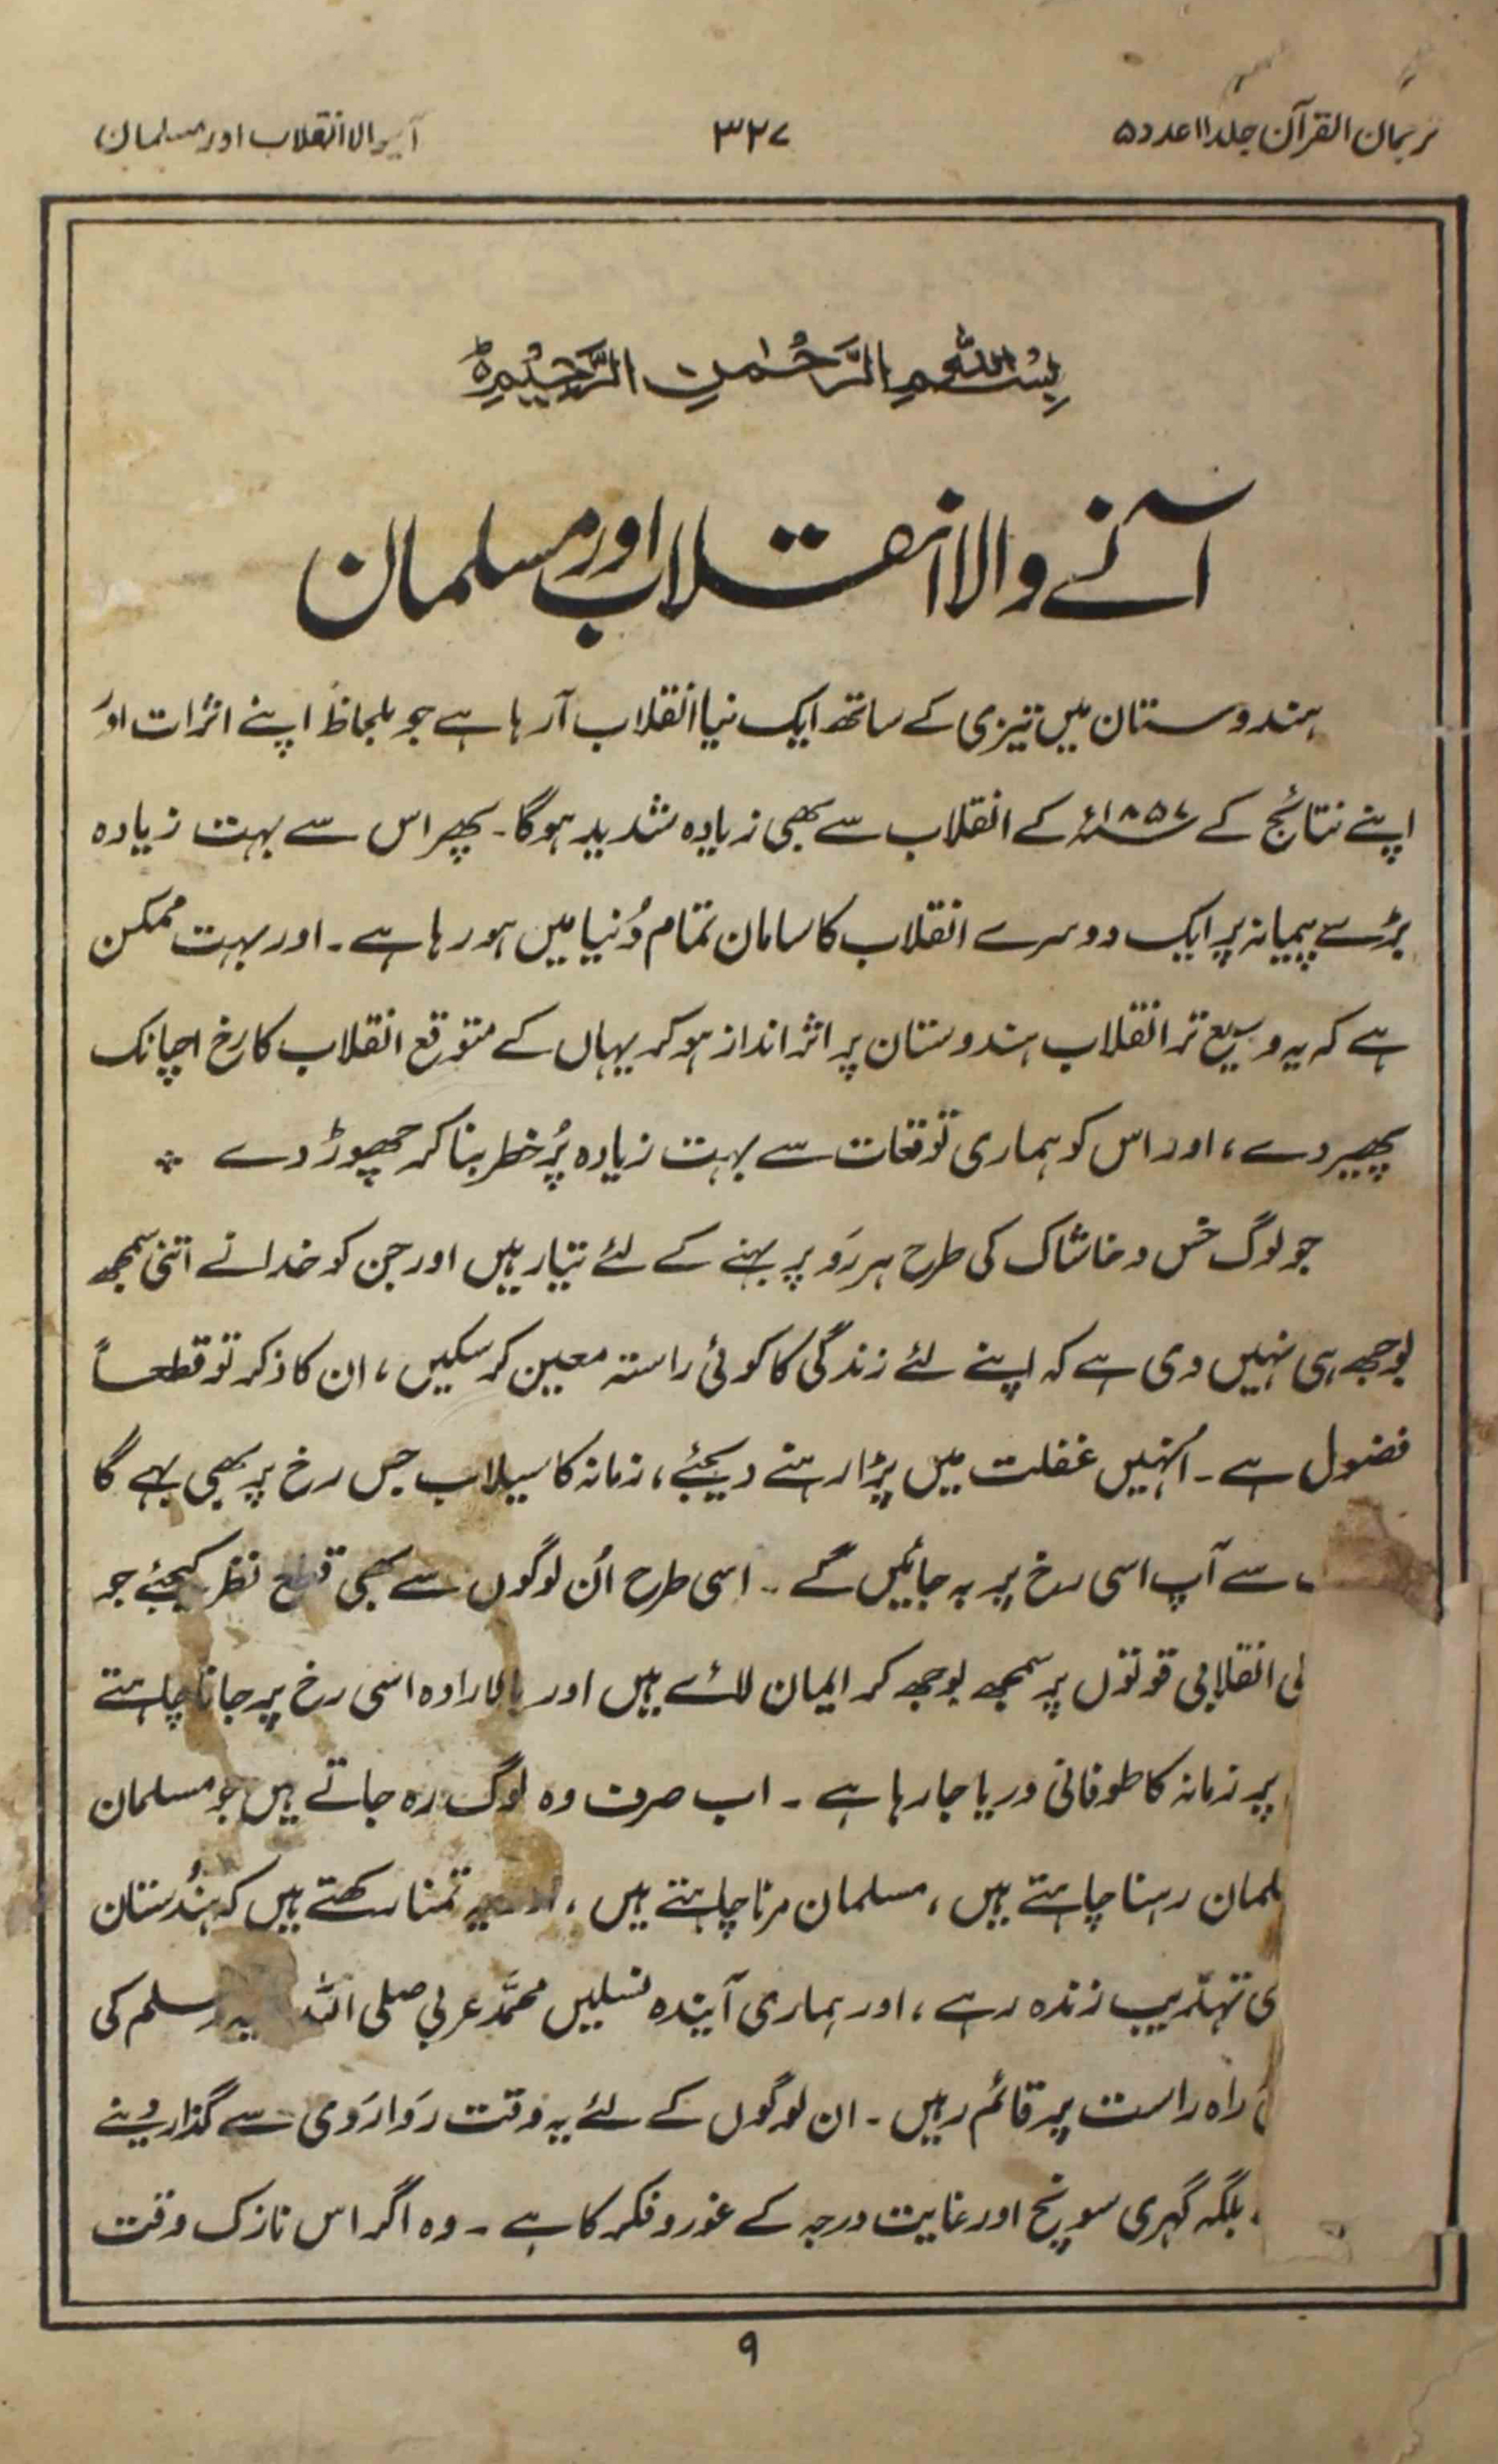 ترجمان القرآن جلد ۱۱ عدد ۵
۳۲۷
آنیوالا انقلاب اور مسلمان
بِسْمِ اللهِ الرَّحْمٰنِ الرَّحِيْمِ
آنے والا انقلاب اور مسلمان
ہندوستان میں تیزی کے ساتھ ایک نیا انقلاب آ رہا ہے جو بلحاظ اپنے اثرات اور
اپنے نتائج کے ۱۸۵۷ء کے انقلاب سے بھی زیادہ شدید ہوگا۔ پھر اس سے بہت زیادہ
بڑے پیمانہ پر ایک دوسرے انقلاب کا سامان تمام دُنیا میں ہو رہا ہے۔ اور بہت ممکن
ہے کہ یہ وسیع تر انقلاب ہندوستان پر اثر انداز ہو کر یہاں کے متوقع انقلاب کا رخ اچانک
پھیر دے، اور اس کو ہماری توقعات سے بہت زیادہ پُر خطر بنا کر چھوڑ دے ۔
جو لوگ خس و خاشاک کی طرح ہر رَو پر بہنے کے لئے تیار ہیں اور جن کو خدا نے اتنی سمجھ
بوجھ ہی نہیں دی ہے کہ اپنے لئے زندگی کا کوئی راستہ معین کر سکیں، ان کا ذکر تو قطعاً
فضول ہے۔ اُنہیں غفلت میں پڑا رہنے دیجئے، زمانہ کا سیلاب جس رخ پر بھی بہے گا
سے آپ اسی رخ پر بہ جائیں گے۔ اسی طرح اُن لوگوں سے بھی قطع نظر کیجئے جو
انقلابی قوتوں پر سمجھ بوجھ کر ایمان لائے ہیں اور بالارادہ اسی رخ پر جانا چاہتے
پر زمانہ کا طوفانی دریا جا رہا ہے۔ اب صرف وہ لوگ رہ جاتے ہیں جو مسلمان
لمان رہنا چاہتے ہیں، مسلمان مرنا چاہتے ہیں، اور یہ تمنا رکھتے ہیں کہ ہندُستان
ی تہذیب زندہ رہے، اور ہماری آیندہ نسلیں محمّد عربی صلی اللہ وسلم کی
راہ راست پر قائم رہیں۔ ان لوگوں کے لئے یہ وقت رَوارَوی سے گذار دینے
بلکہ گہری سونچ اور غایت درجہ کے غور و فکر کا ہے۔ وہ اگر اس نازک وقت
۹